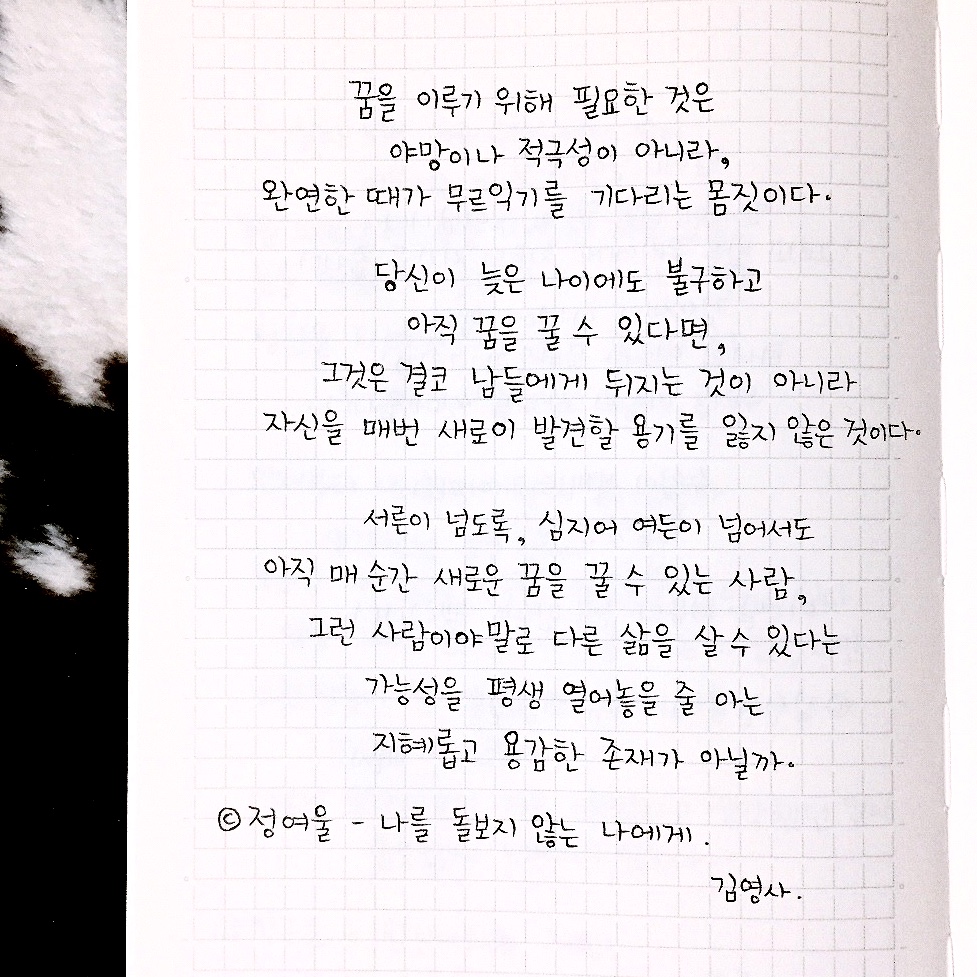 꿈을 이루기 위해 필요한 것은
야망이나 적극성이 아니라,
완연한 때가 무르익기를 기다리는 몸짓이다.
당신이 늦은 나이에도 불구하고
아직 꿈을 꿀 수 있다면,
그것은 결코 남들에게 뒤지는 것이 아니라
자신을 매번 새로이 발견할 용기를 잃지 않은 것이다.
서른이 넘도록, 심지어 여든이 넘어서도
아직 매 순간 새로운 꿈을 꿀 수 있는 사람,
그런 사람이야말로 다른 삶을 살 수 있다는
가능성을 평생 열어놓을 줄 아는
지혜롭고 용감한 존재가 아닐까.
©정여울 - 나를 돌보지 않는 나에게.
김영사.